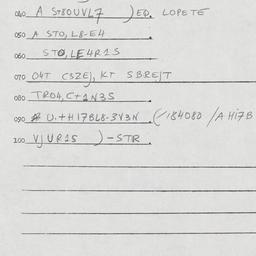 040 A ST80UVL7 ) EQ. LOPETE
050 A STO, L8-E4 .
060 STO, LE4R1S
070 O4T (3ZEJ, KT SBREJT
080 TRO4, C+1N3S .
090 U.+H17BL8-3V3N . (184080 / A H17B
100 VJUR1S ) - STR .